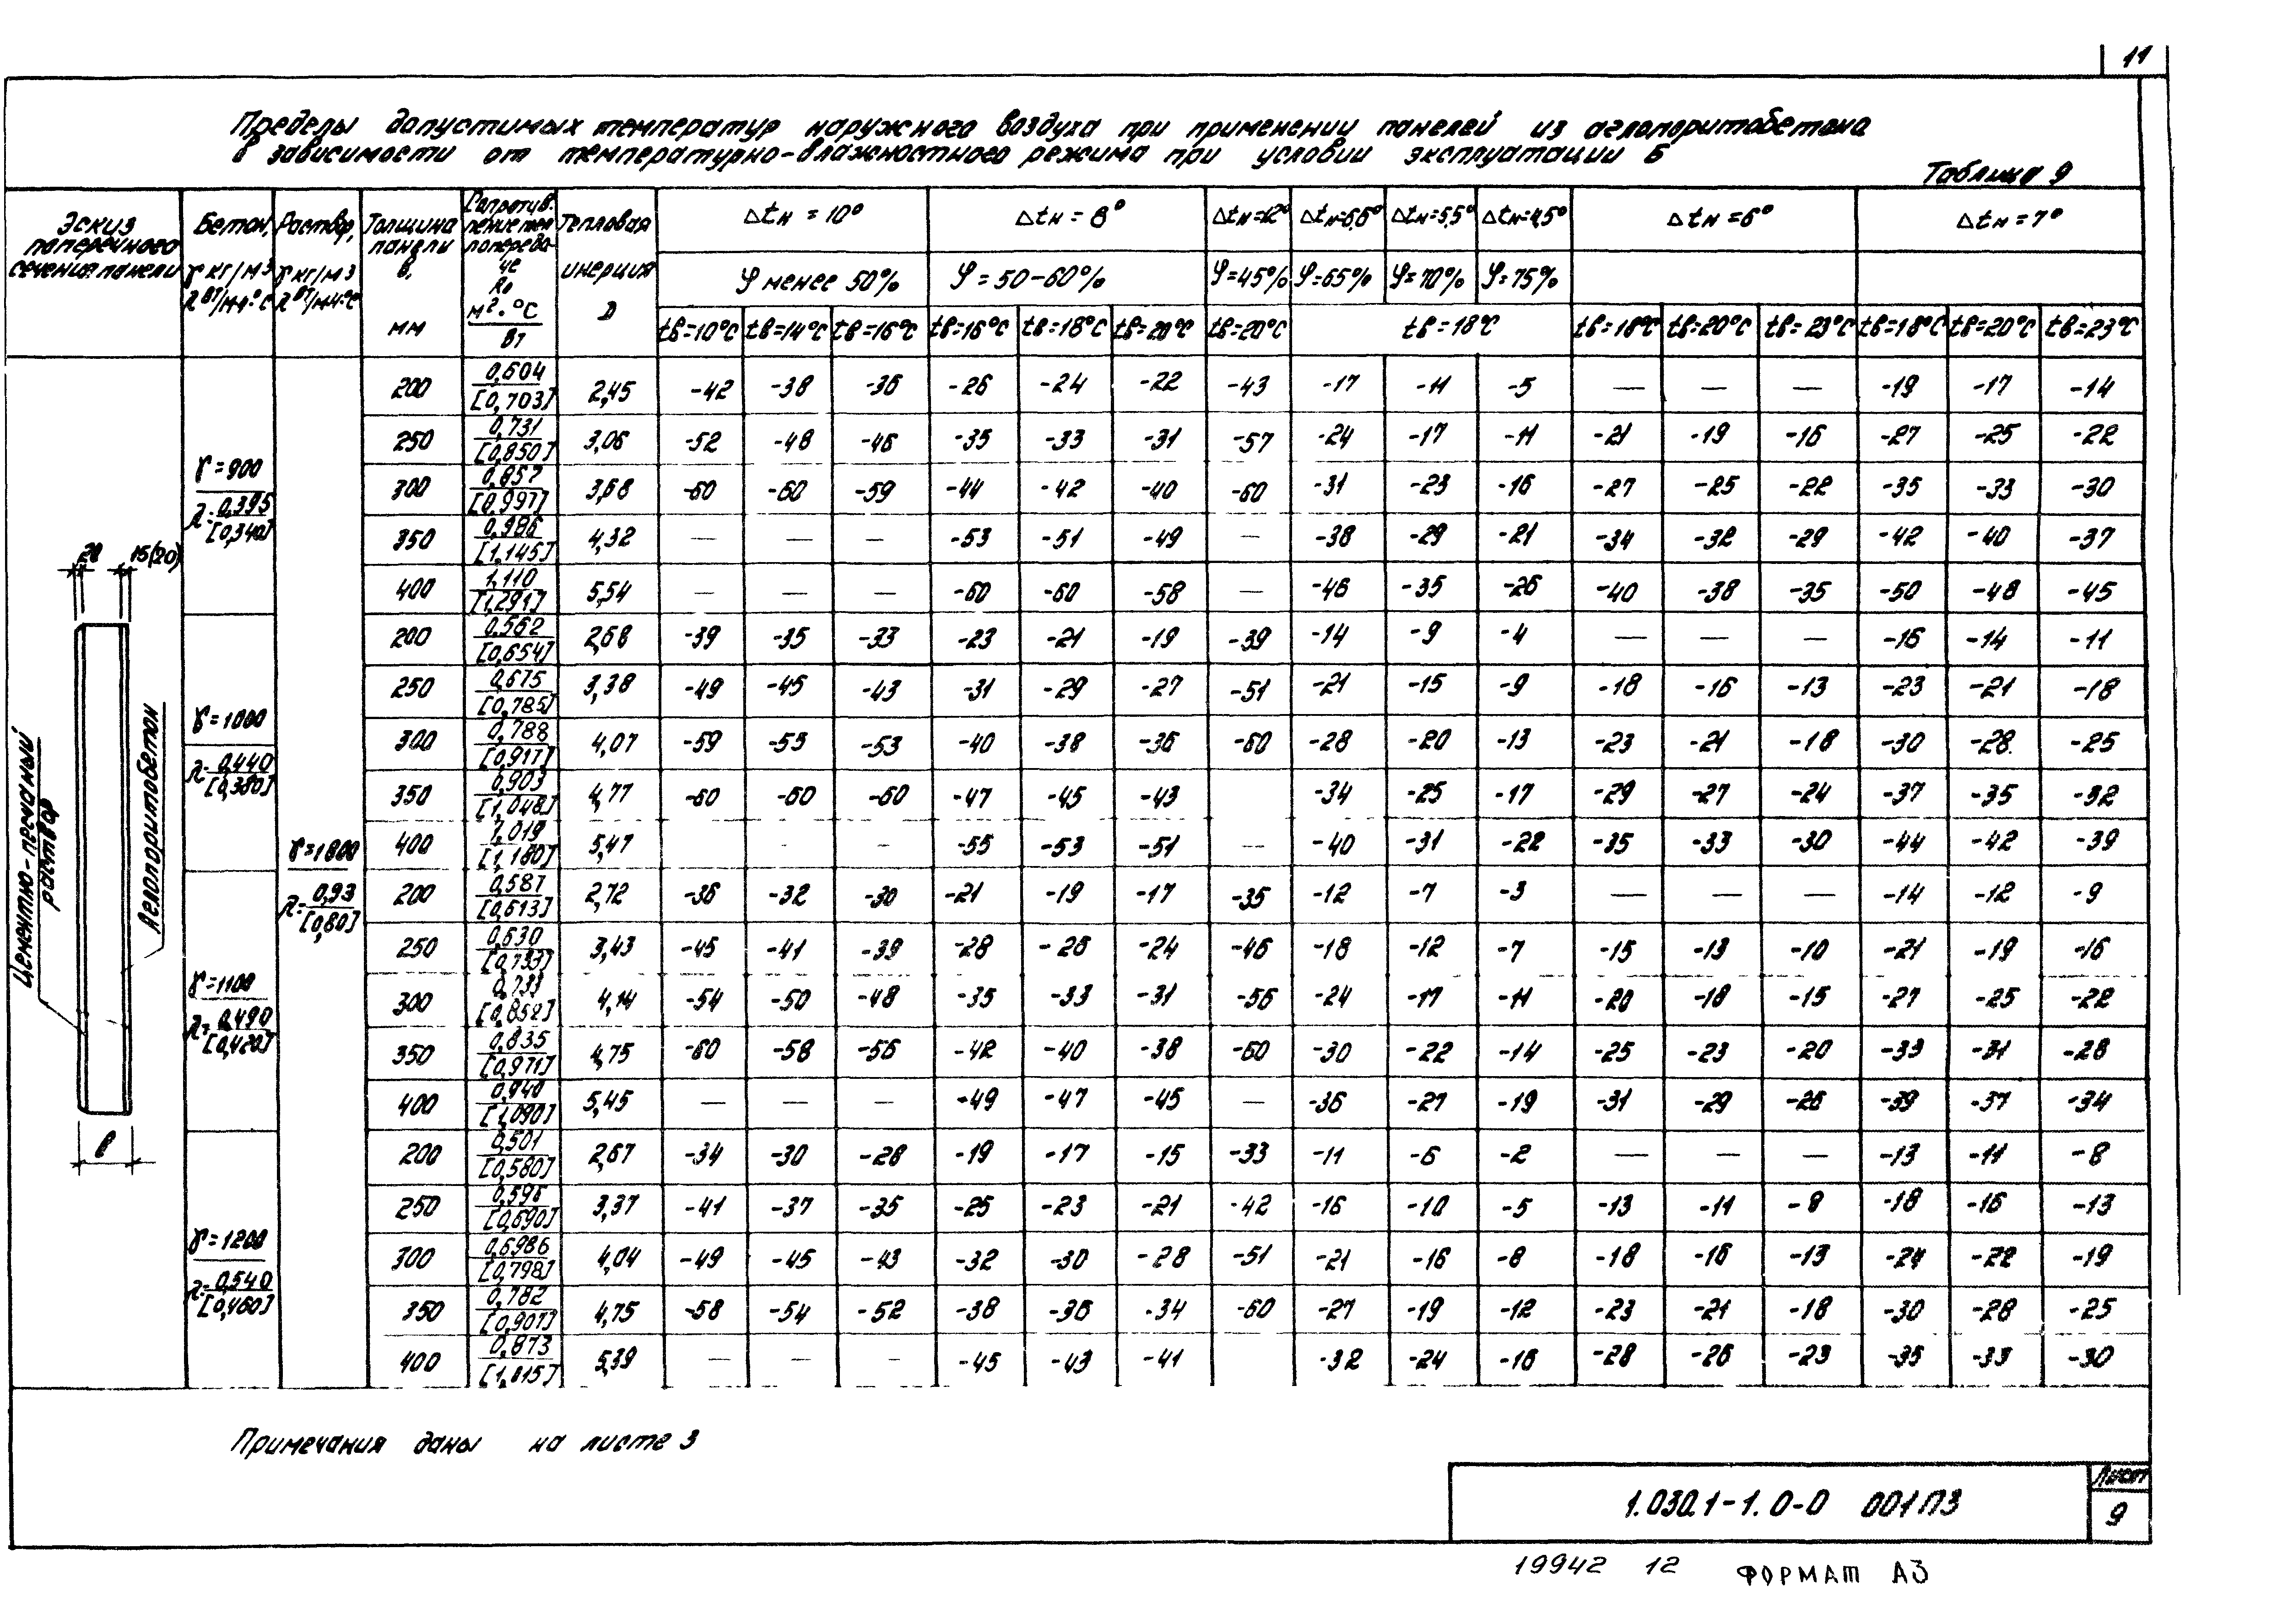 11
Пределы допустимых температур наружного воздуха при применении панелей из аглопоритобетона
в зависимости от температурно-влажностного режима при условии эксплуатации Б
Таблица 9
Эскиз поперечного сечения панели
Бетон, γ кг/м³ λ Вт/м·°С
Раствор, γ кг/м³ λ Вт/м·°С
Толщина панели в, мм
Сопротивление теплопередаче R₀ м²·°С/Вт
Тепловая инерция D
Δtн = 10° Δtн = 8° Δtн=12° Δtн=6,5° Δtн=5,5° Δtн=4,5° Δtн = 6° Δtн = 7°
φ менее 50% φ = 50-60% φ=45% φ=65% φ=70% φ=75%
tв=10°С tв=14°С tв=16°С tв=16°С tв=18°С tв=20°С tв=20°С tв = 18°С tв=18°С tв=20°С tв=23°С tв=18°С tв=20°С tв=23°С
20 15(20)
Цементно-песчаный раствор
Аглопоритобетон
в
γ=1800
λ=0,93/[0,80]
γ=900
λ=0,395/[0,340]
200 0,604/[0,703] 2,45 -42 -38 -36 -26 -24 -22 -43 -17 -11 -5 — — — -19 -17 -14
250 0,731/[0,850] 3,06 -52 -48 -46 -35 -33 -31 -57 -24 -17 -11 -21 -19 -16 -27 -25 -22
300 0,857/[0,997] 3,68 -60 -60 -59 -44 -42 -40 -60 -31 -23 -16 -27 -25 -22 -35 -33 -30
350 0,986/[1,145] 4,32 — — — -53 -51 -49 — -38 -29 -21 -34 -32 -29 -42 -40 -37
400 1,110/[1,291] 5,54 — — — -60 -60 -58 — -46 -35 -26 -40 -38 -35 -50 -48 -45
γ=1000
λ=0,440/[0,380]
200 0,562/[0,654] 2,68 -39 -35 -33 -23 -21 -19 -39 -14 -9 -4 — — — -16 -14 -11
250 0,675/[0,785] 3,38 -49 -45 -43 -31 -29 -27 -51 -21 -15 -9 -18 -16 -13 -23 -21 -18
300 0,788/[0,917] 4,07 -59 -53 -53 -40 -38 -36 -60 -28 -20 -13 -23 -21 -18 -30 -28 -25
350 0,903/[1,048] 4,77 -60 -60 -60 -47 -45 -43 -34 -25 -17 -29 -27 -24 -37 -35 -32
400 1,019/[1,180] 5,47 — — -55 -53 -51 — -40 -31 -22 -35 -33 -30 -44 -42 -39
γ=1100
λ=0,490/[0,420]
200 0,587/[0,613] 2,72 -36 -32 -30 -21 -19 -17 -35 -12 -7 -3 — — — -14 -12 -9
250 0,630/[0,733] 3,43 -45 -41 -39 -28 -26 -24 -46 -18 -12 -7 -15 -13 -10 -21 -19 -16
300 0,733/[0,852] 4,14 -54 -50 -48 -35 -33 -31 -56 -24 -17 -11 -20 -18 -15 -27 -25 -22
350 0,835/[0,971] 4,75 -60 -58 -56 -42 -40 -38 -60 -30 -22 -14 -25 -23 -20 -33 -31 -28
400 0,940/[1,090] 5,45 — — — -49 -47 -45 — -36 -27 -19 -31 -29 -26 -39 -37 -34
γ=1200
λ=0,540/[0,460]
200 0,501/[0,580] 2,67 -34 -30 -28 -19 -17 -15 -33 -11 -6 -2 — — — -13 -11 -8
250 0,596/[0,690] 3,37 -41 -37 -35 -25 -23 -21 -42 -16 -10 -5 -13 -11 -8 -18 -16 -13
300 0,6986/[0,798] 4,04 -49 -45 -43 -32 -30 -28 -51 -21 -16 -8 -18 -16 -13 -24 -22 -19
350 0,782/[0,907] 4,75 -58 -54 -52 -38 -36 -34 -60 -27 -19 -12 -23 -21 -18 -30 -28 -25
400 0,873/[1,015] 5,39 — — — -45 -43 -41 -32 -24 -16 -28 -26 -23 -35 -33 -30
Примечания даны на листе 3
1.030.1-1. 0-0 001ПЗ
Лист
9
19942 12 ФОРМАТ А3